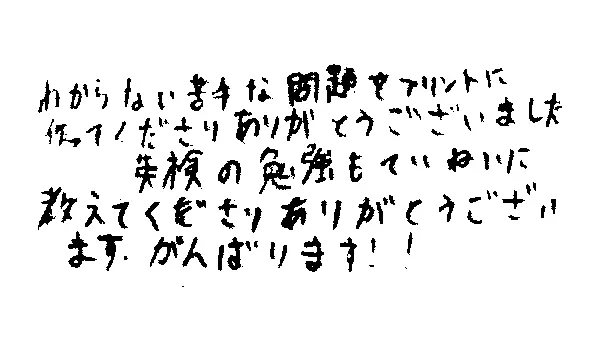 わからない苦手な問題をプリントに
作ってくださりありがとうございました
英検の勉強もていねいに
教えてくださりありがとうござい
ます。がんばります!!